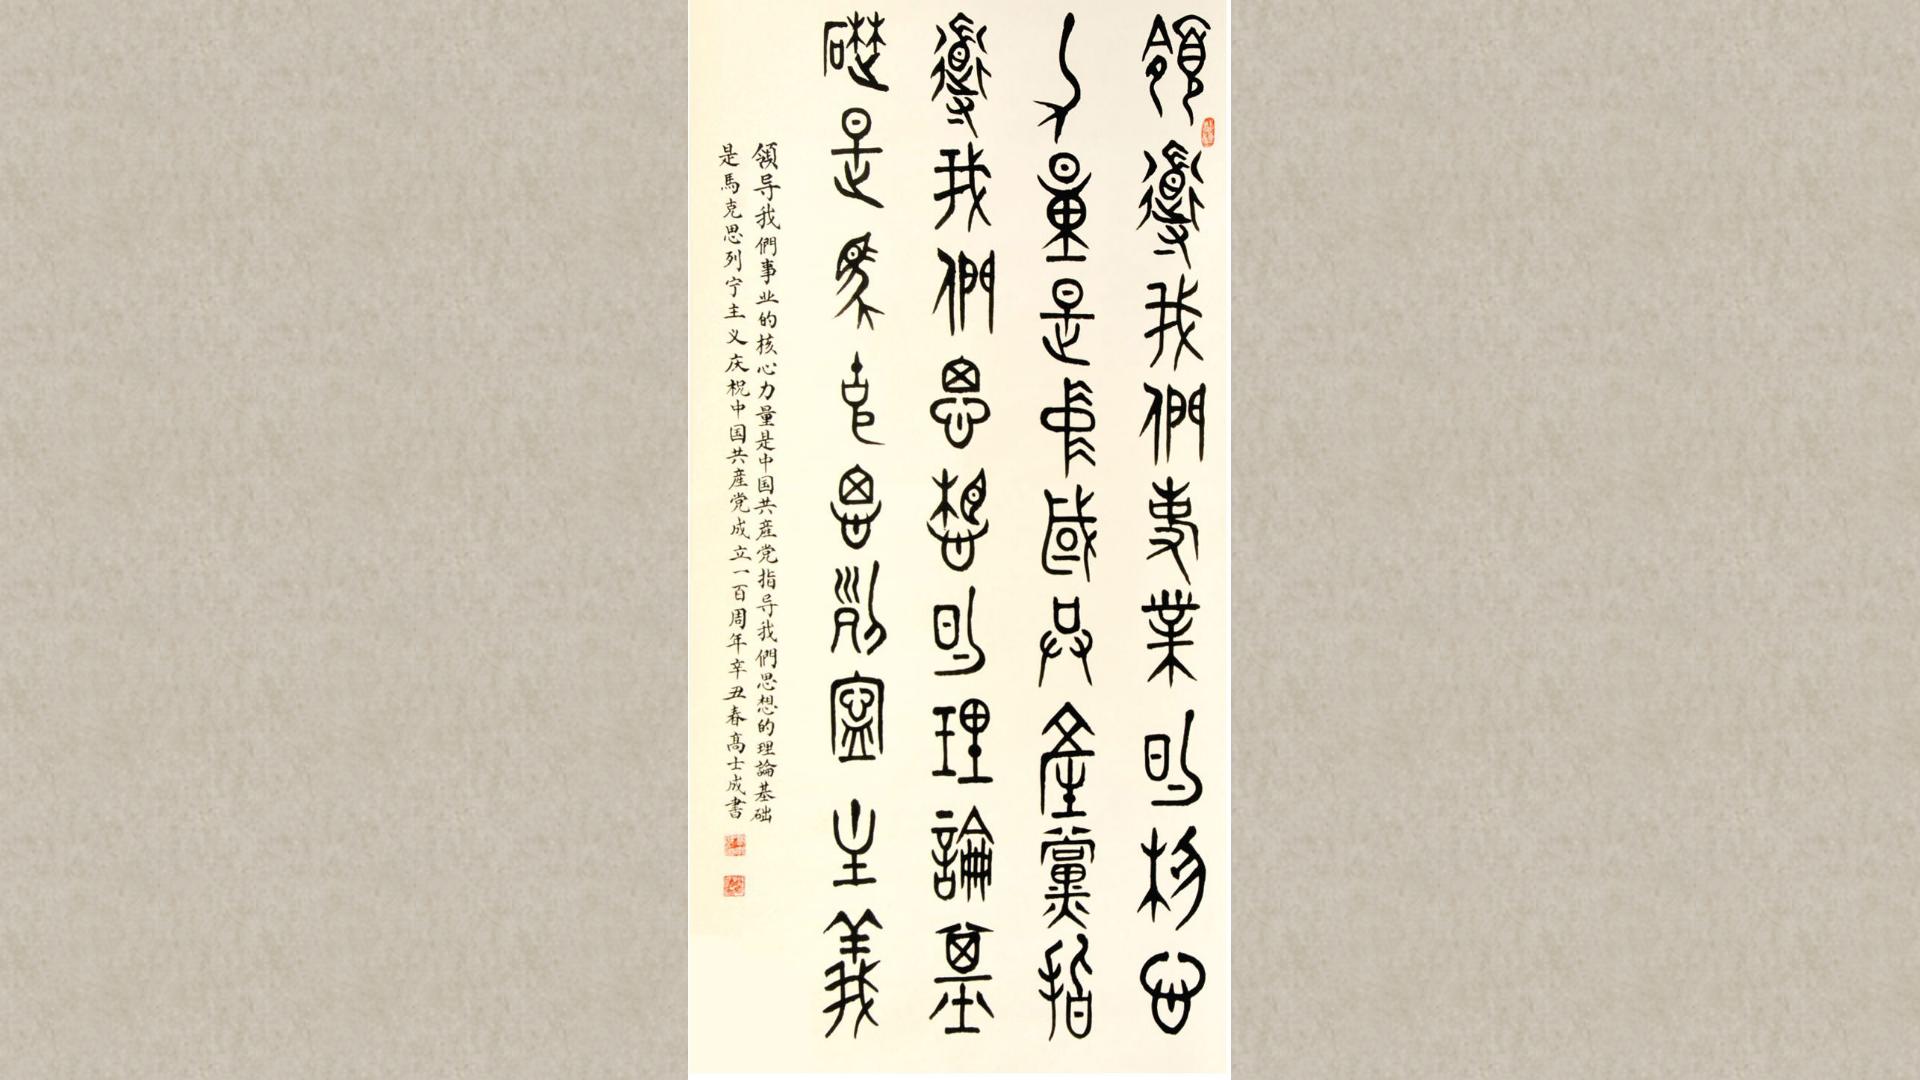 領導我們事業的核心
力量是中國共產黨指
導我們思想的理論基
礎是馬克思列寧主義
領导我們事业的核心力量是中国共産党指导我們思想的理論基础
是馬克思列宁主义庆祝中国共産党成立一百周年辛丑春高士成書